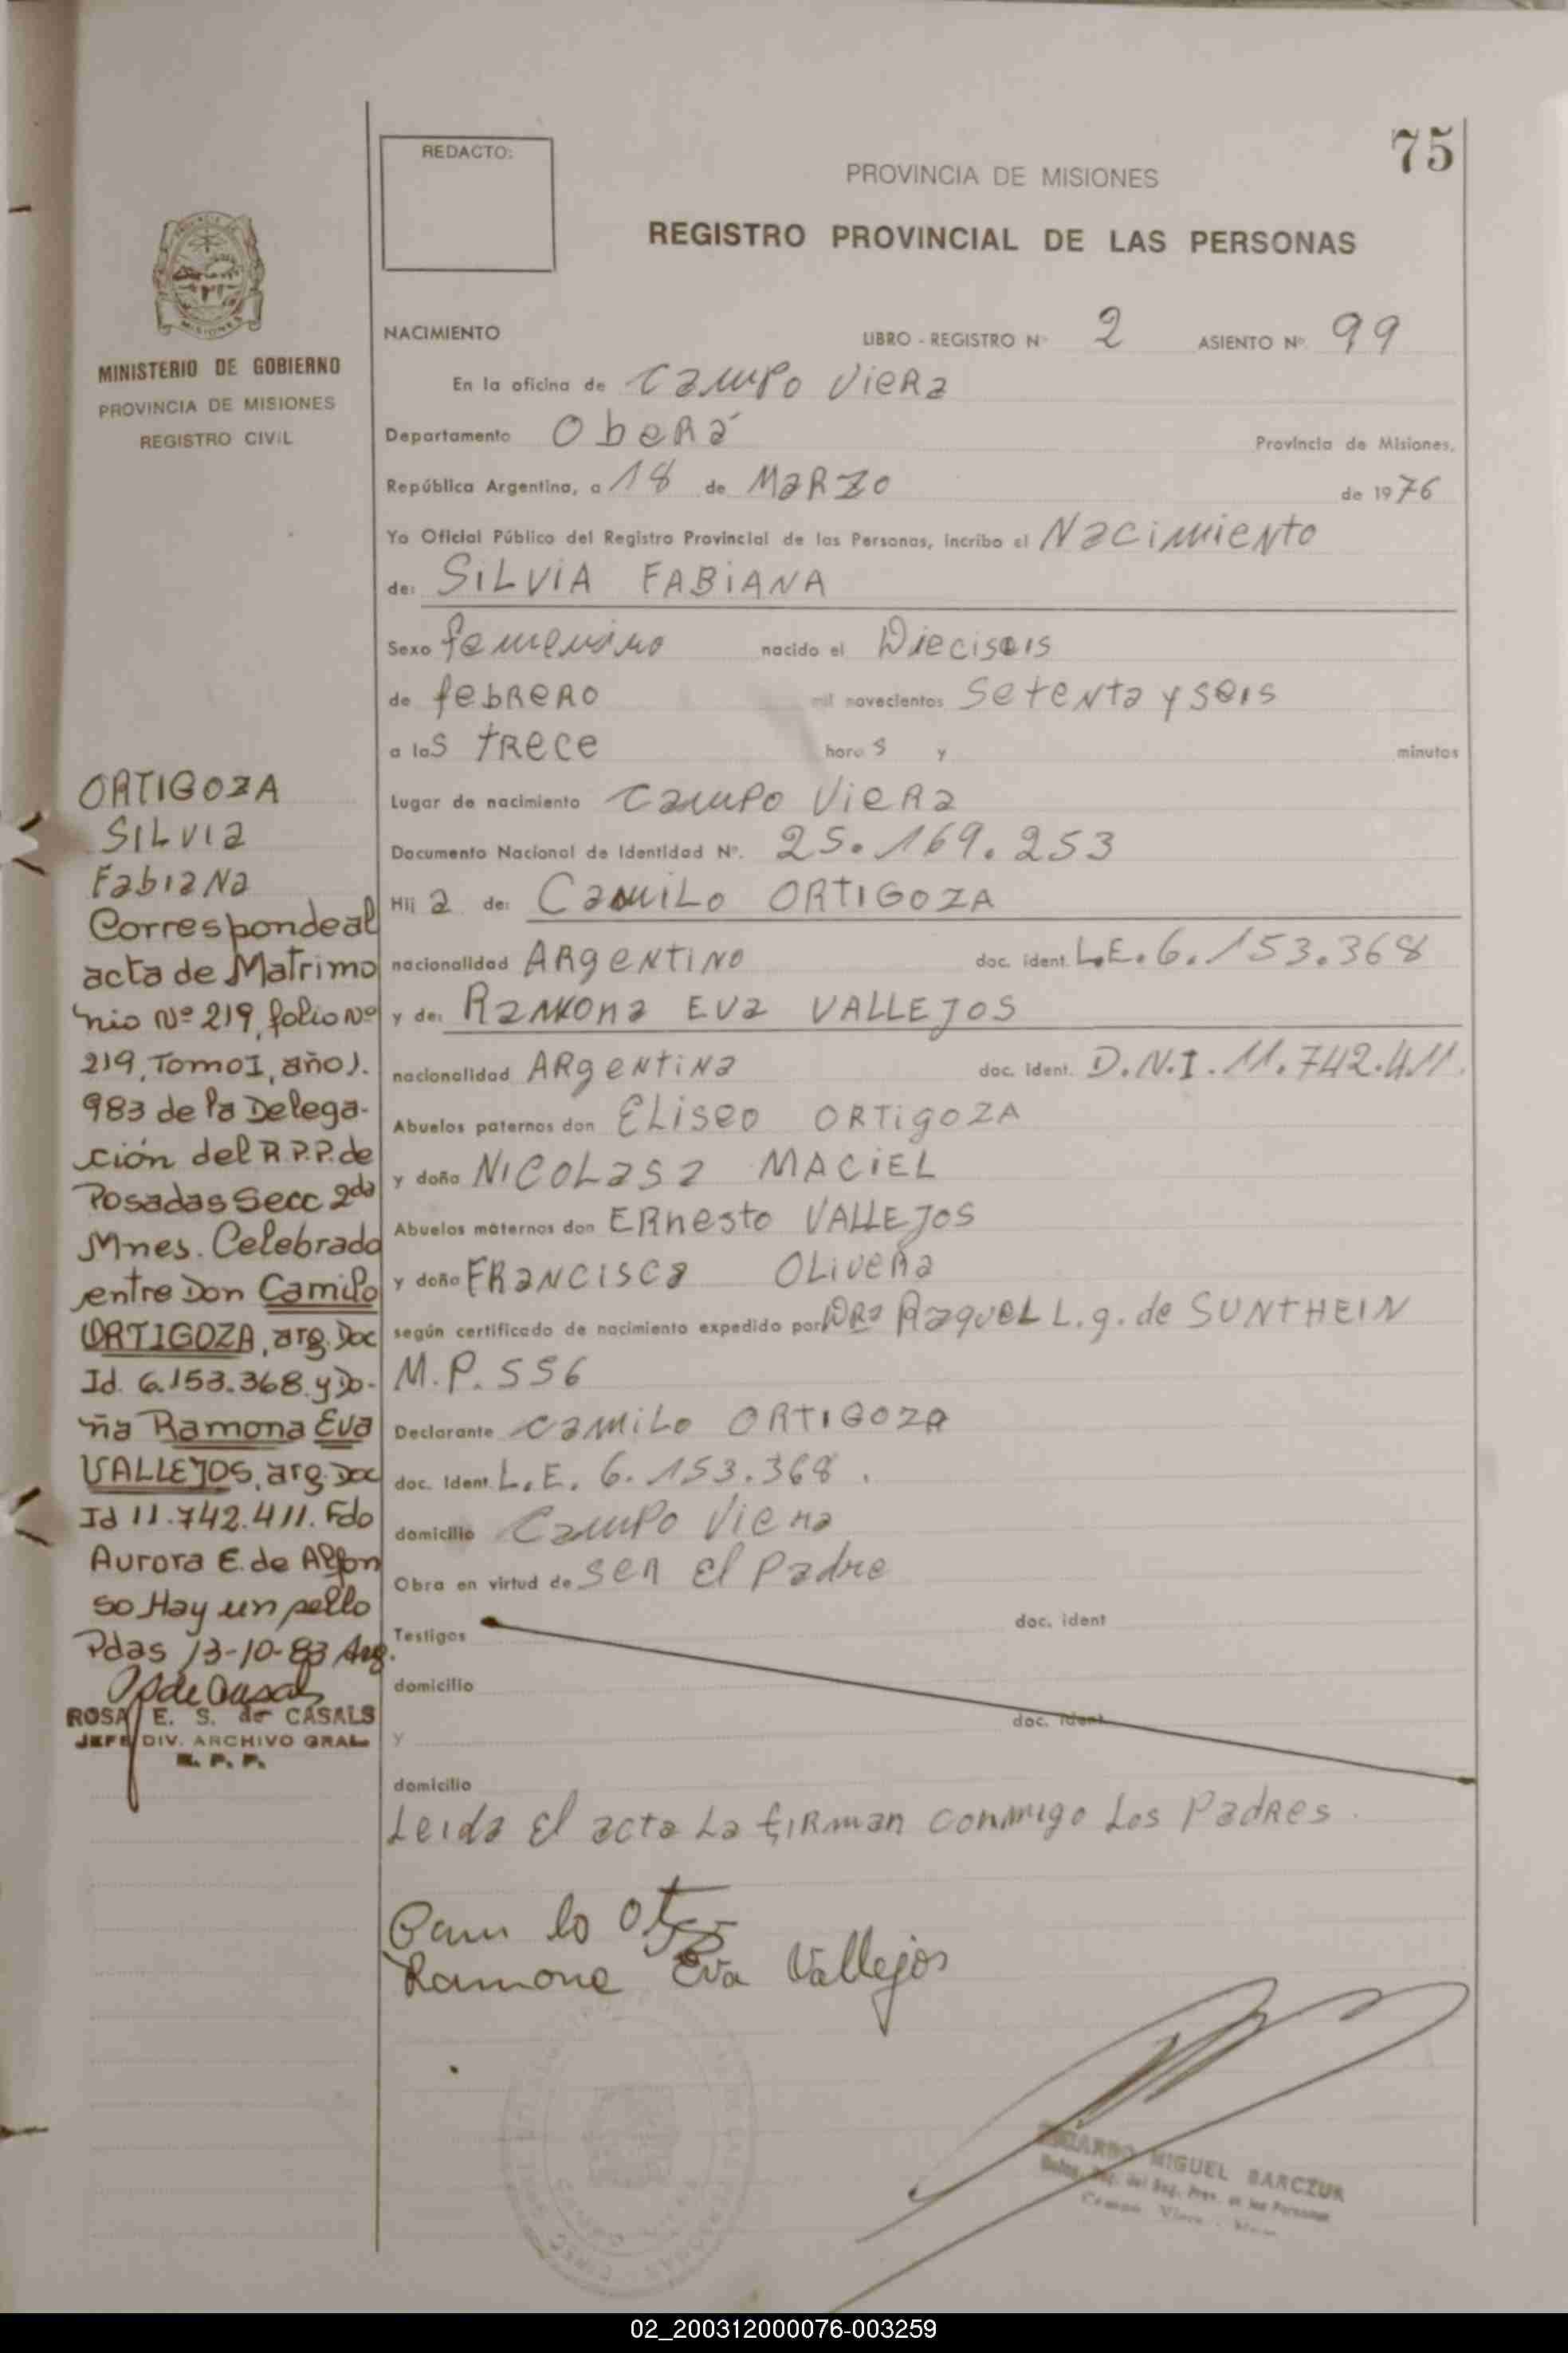 75
REDACTO:
PROVINCIA DE MISIONES
REGISTRO PROVINCIAL DE LAS PERSONAS
MISIONES
MINISTERIO DE GOBIERNO
PROVINCIA DE MISIONES
REGISTRO CIVIL
NACIMIENTO LIBRO - REGISTRO Nº 2 ASIENTO Nº 99
En la oficina de Campo Viera
Departamento Oberá Provincia de Misiones,
República Argentina, a 18 de Marzo de 1976
Yo Oficial Público del Registro Provincial de las Personas, incribo el Nacimiento
de: SILVIA FABIANA
Sexo femenino nacido el Dieciseis
de febrero mil novecientos setenta y seis
a las trece horas y minutos
Lugar de nacimiento Campo Viera
Documento Nacional de Identidad Nº. 25.169.253
Hija de: Camilo ORTIGOZA
nacionalidad Argentino doc. ident. L.E. 6.153.368
y de: Ramona Eva VALLEJOS
nacionalidad Argentina doc. ident. D.N.I. 11.742.411.
Abuelos paternos don Eliseo ORTIgOZA
y doña Nicolasa MACIEL
Abuelos maternos don Ernesto VALLEJOS
y doña Francisca Olivera
según certificado de nacimiento expedido por Dra Raquel L. g. de SUNTHEIN
M.P. 556
Declarante Camilo ORTIGOZA
doc. ident. L.E. 6.153.368.
domicilio Campo Viera
Obra en virtud de ser el Padre
Testigos doc. ident
domicilio
y doc. ident
domicilio
Leida el acta La firman conmigo Los Padres.
Cam lo
Ramona Eva Vallejos
MIGUEL BARCZUK
ORTIGOZA
SILVIa
Fabiana
Corresponde al
acta de Matrimo
nio Nº 219, folio Nº
219, Tomo I, año 1.
983 de la Delega-
ción del R.P.P. de
Posadas Secc 2da
Mnes. Celebrado
entre Don Camilo
ORTIGOZA, arg. Doc
Id. 6.153.368 y Do-
ña Ramona Eva
VALLEJOS, arg. Doc
Id 11.742.411. Fdo
Aurora E. de Alfon
so Hay un sello
Pdas 13-10-83 Arg.
ROSA E. S. de CASALS
JEFE DIV. ARCHIVO GRAL
R. P. P.
02_200312000076-003259